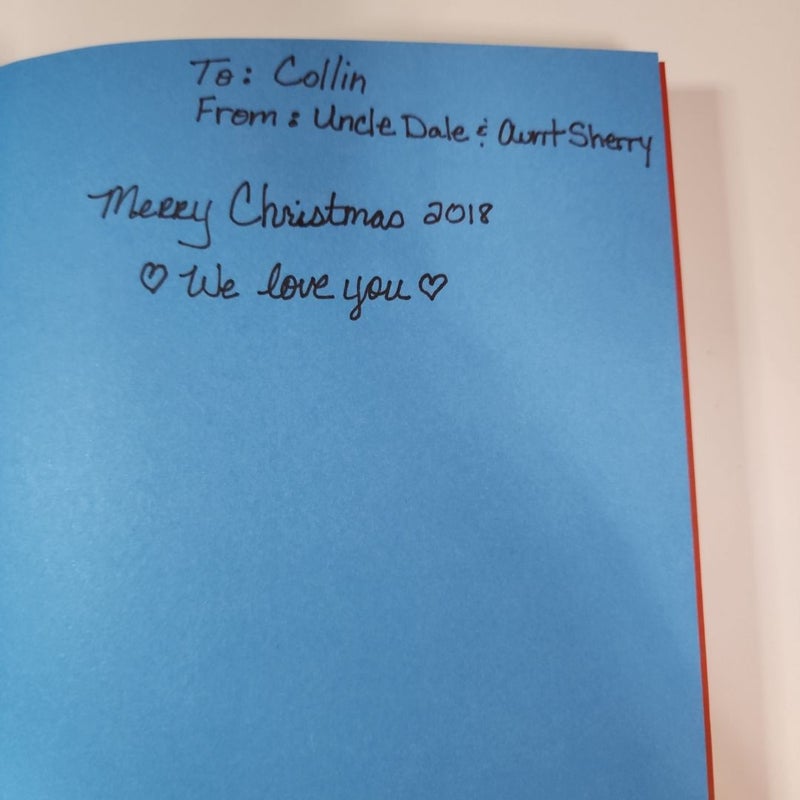 To: Collin
From: Uncle Dale & Aunt Sherry
Merry Christmas 2018
♡ We love you ♡